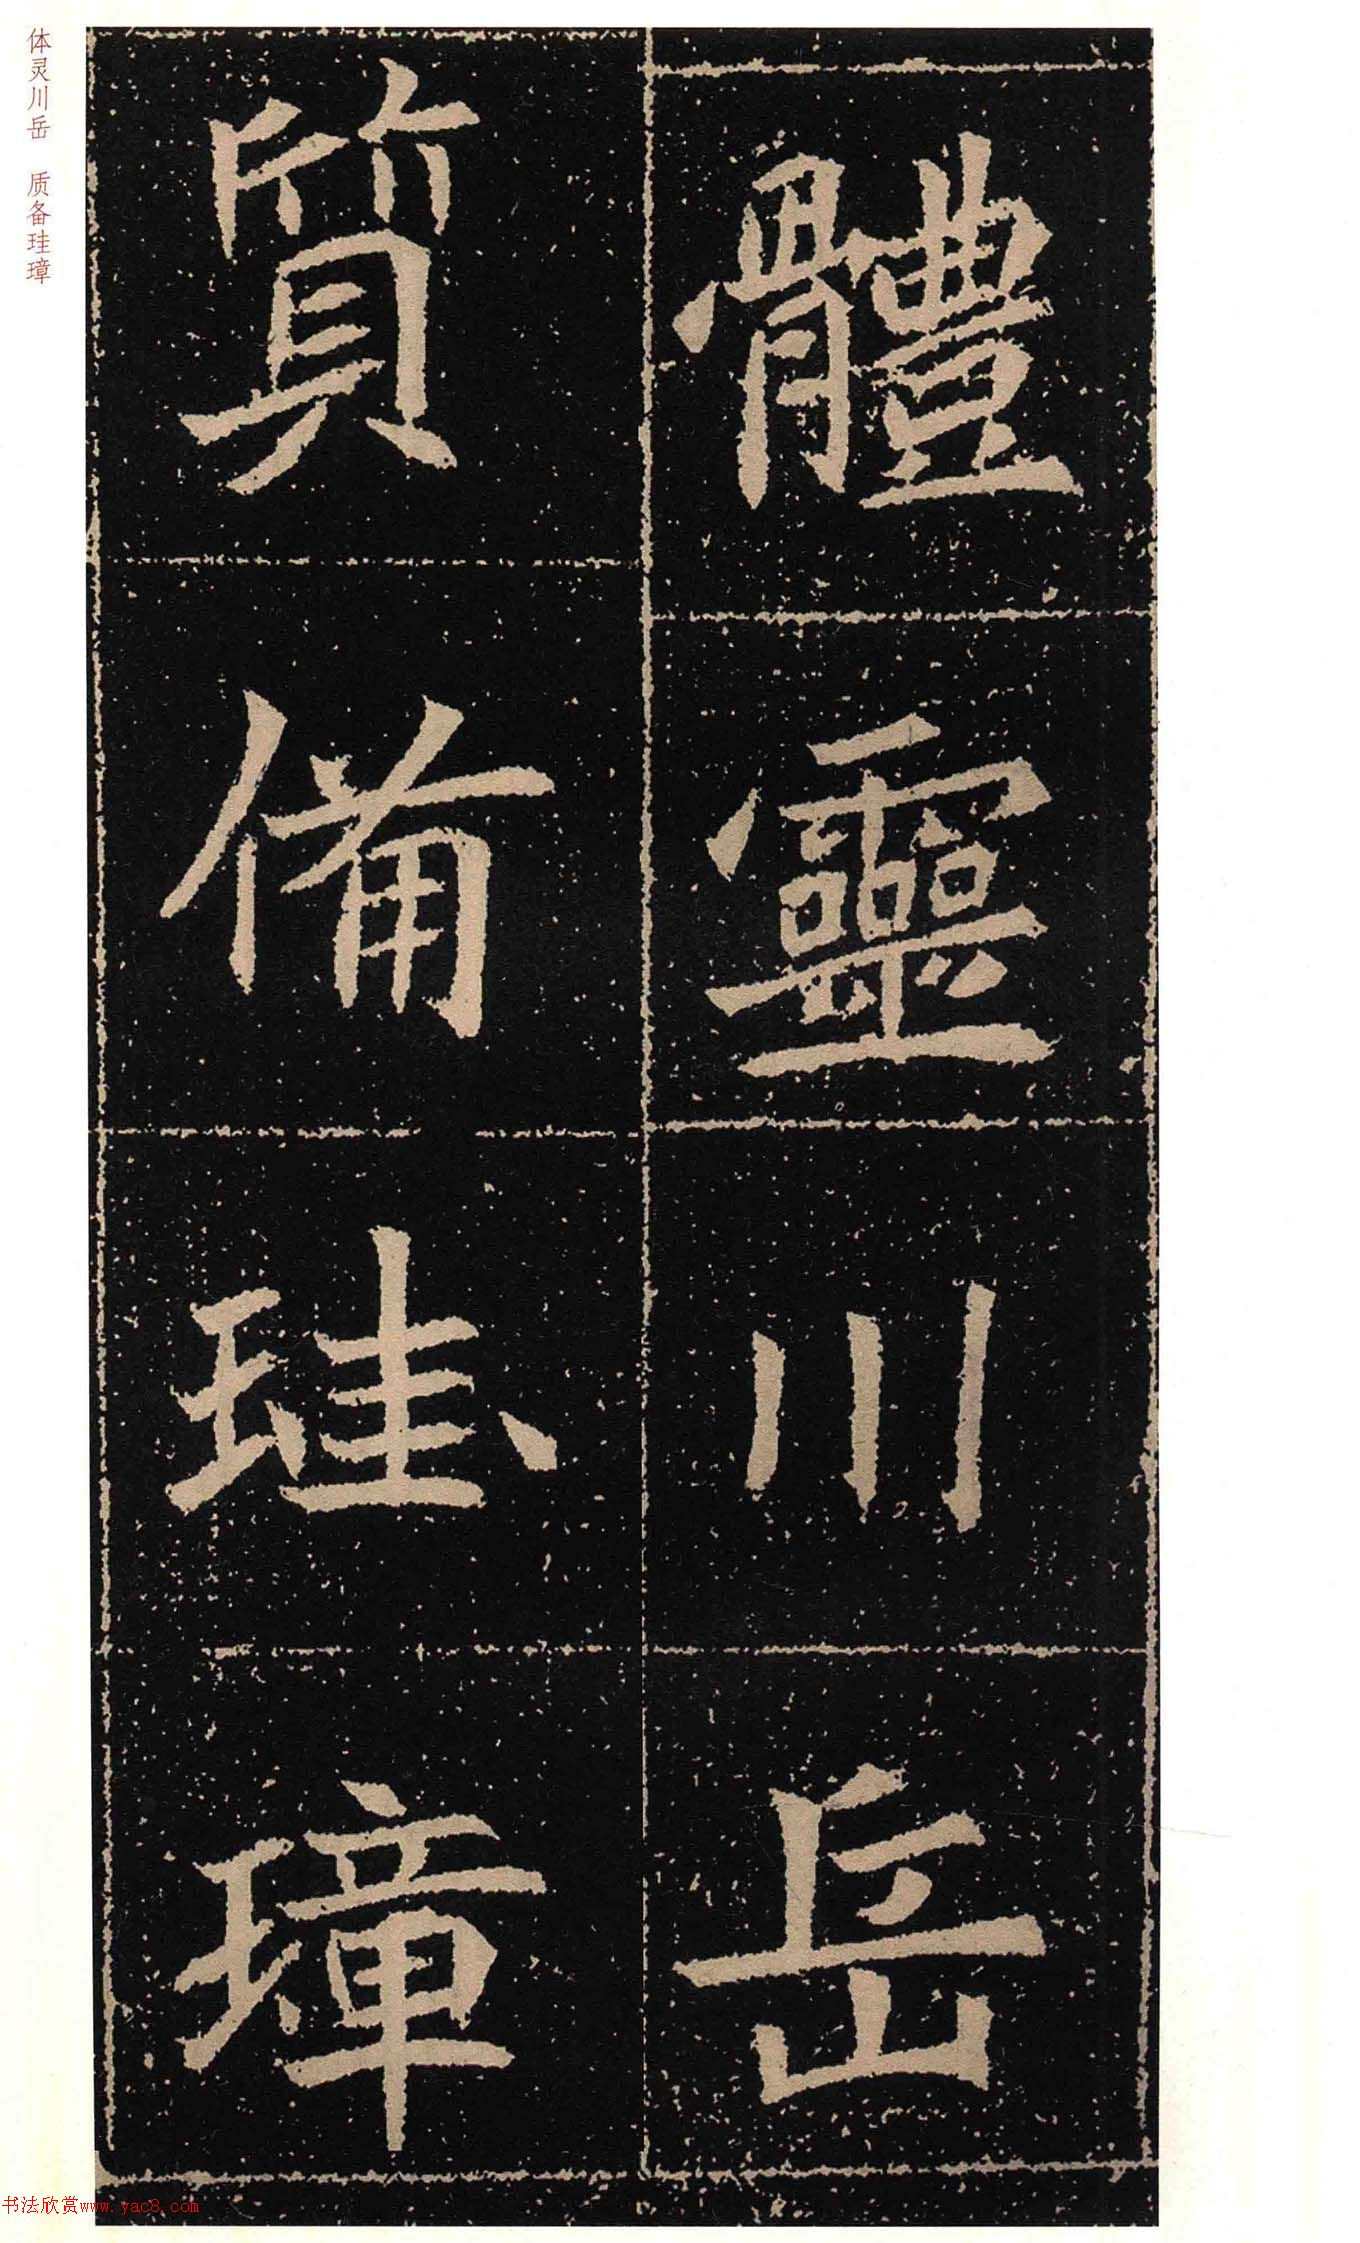 體靈川岳
質備珪璋
体灵川岳 质备珪璋
书法欣赏www.yac8.com